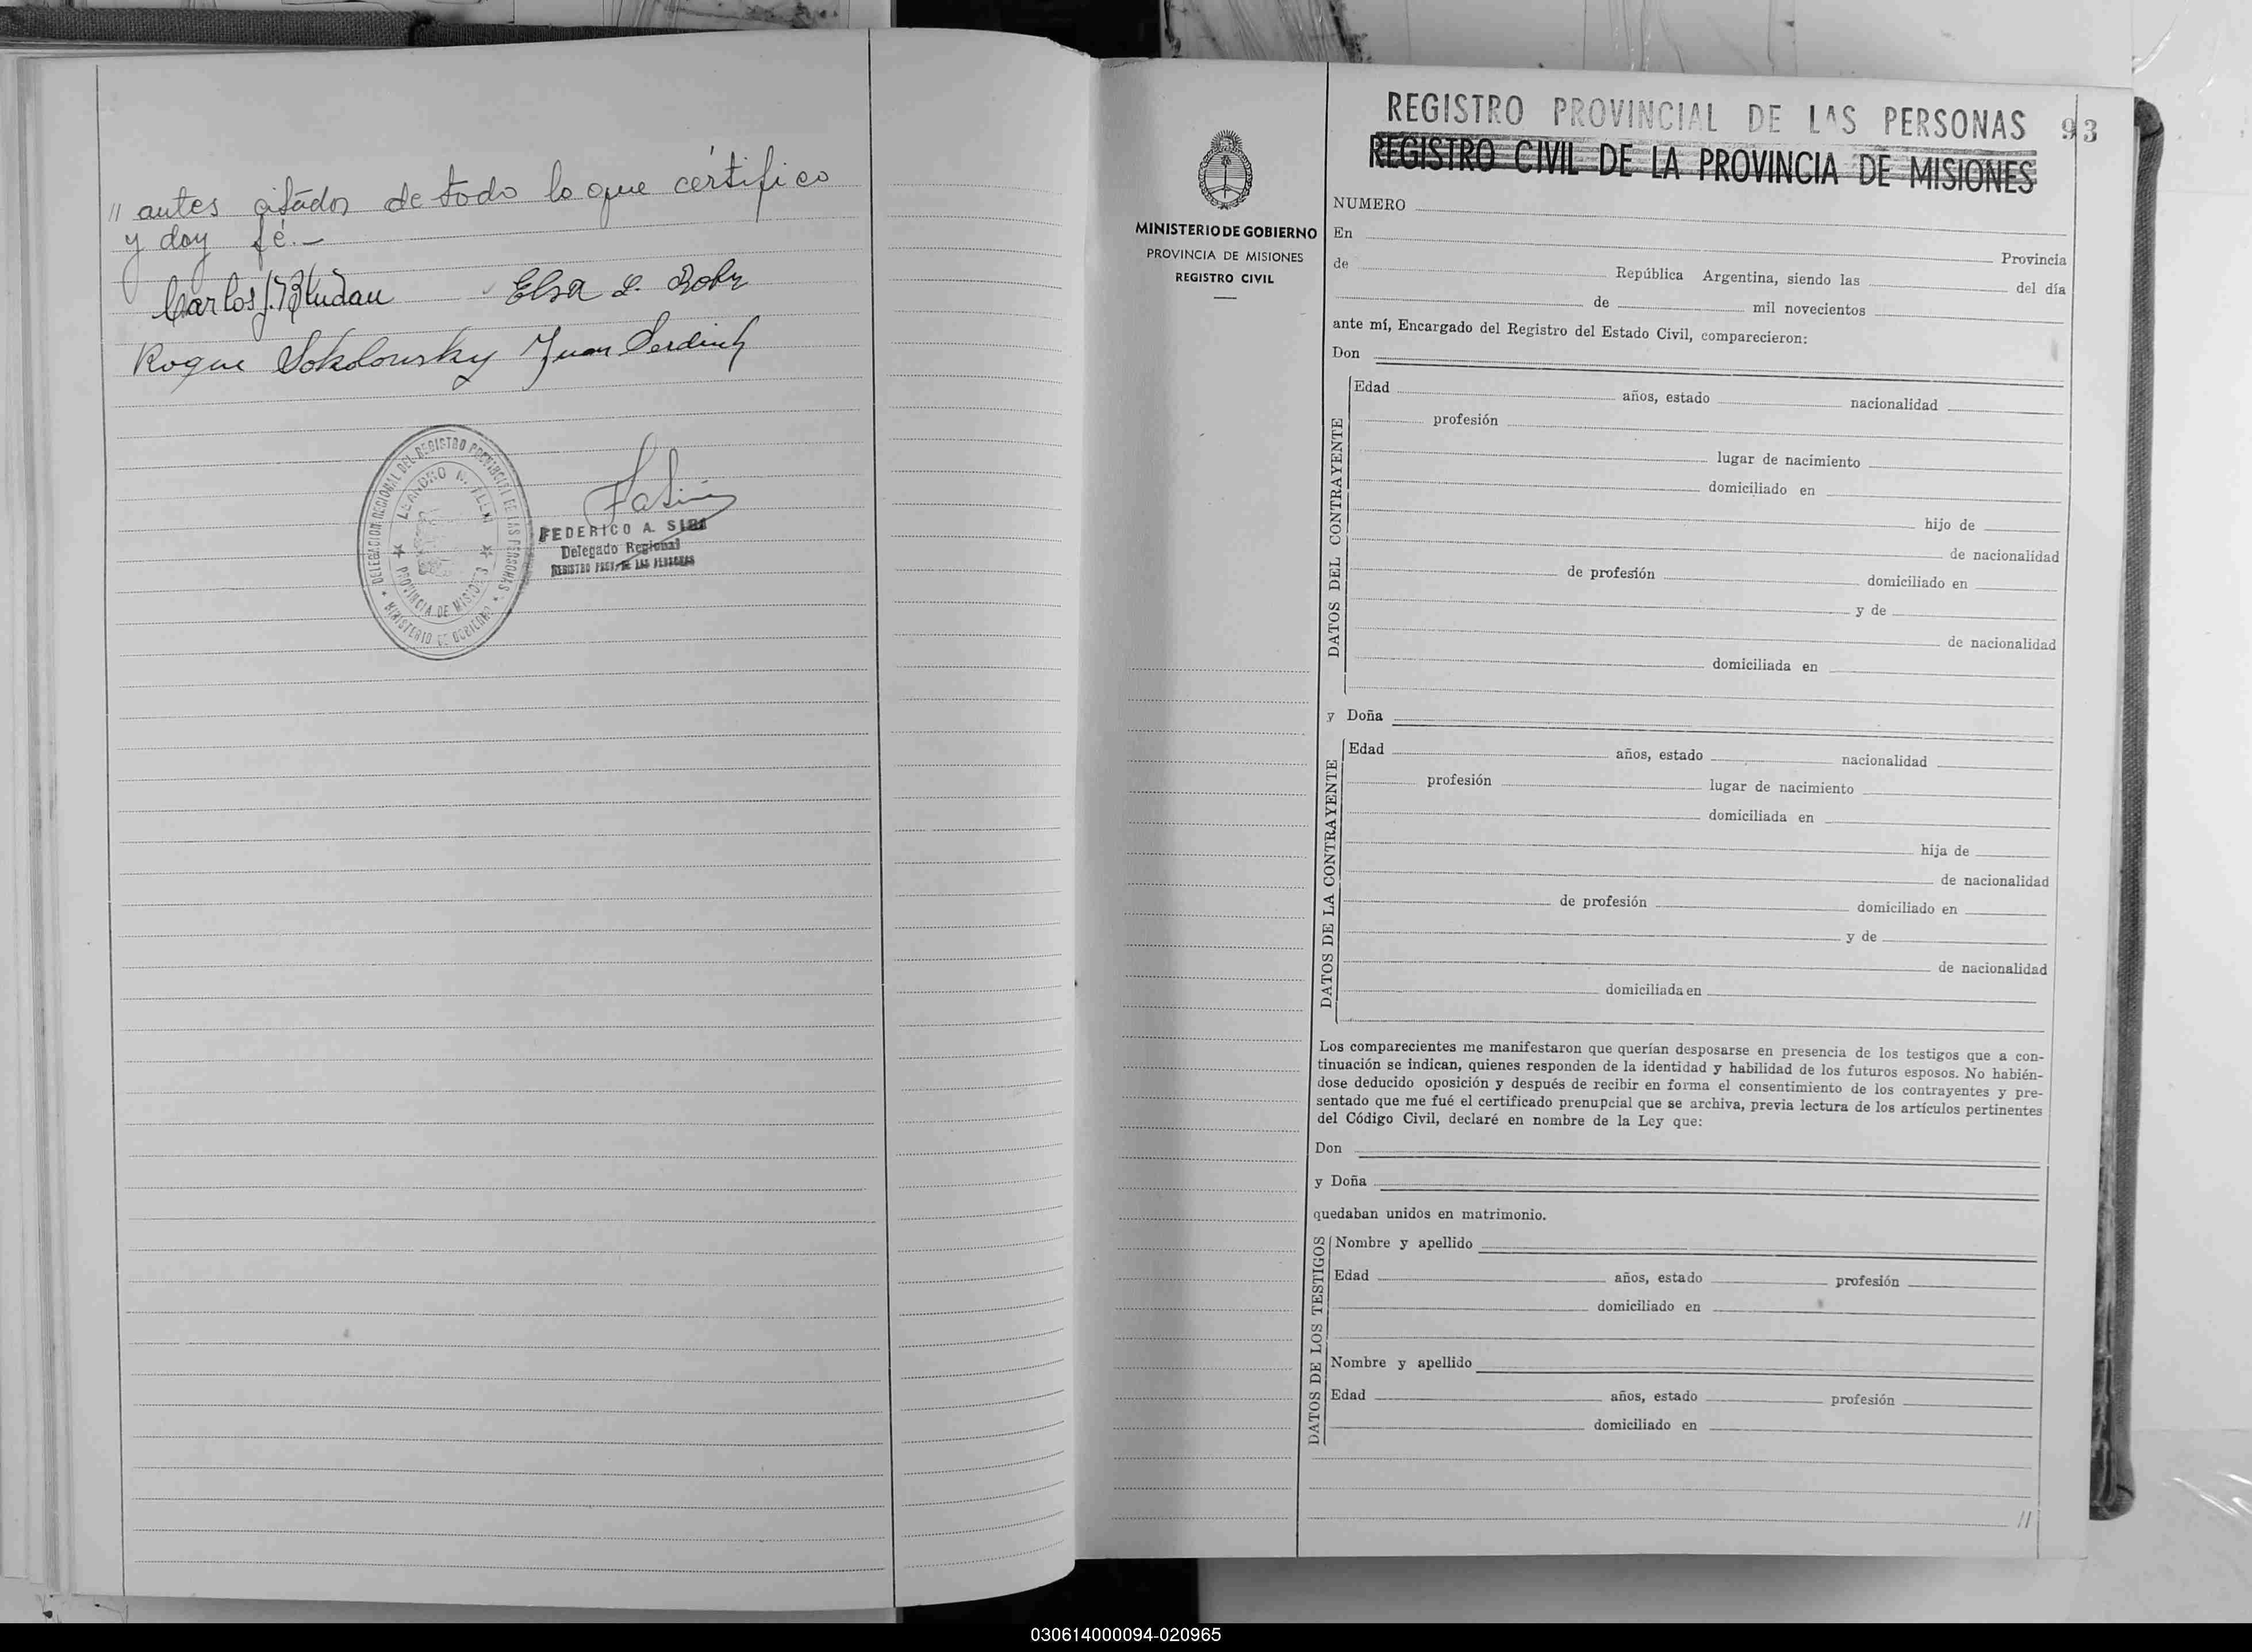 // antes citados de todo lo que certifico
y doy fé.-
Carlos J. Bludau Elsa L.
Roque Sokolousky Juan
DELEGACION REGIONAL DEL REGISTRO PROVINCIAL DE LAS PERSONAS
LEANDRO N. ALEM
PROVINCIA DE MISIONES
MINISTERIO DE GOBIERNO
FEDERICO A.
Delegado Regional
REGISTRO PROV. DE LAS PERSONAS
MINISTERIO DE GOBIERNO
PROVINCIA DE MISIONES
REGISTRO CIVIL
REGISTRO PROVINCIAL DE LAS PERSONAS 93
REGISTRO CIVIL DE LA PROVINCIA DE MISIONES
NUMERO
En Provincia
de República Argentina, siendo las del día
de mil novecientos
ante mí, Encargado del Registro del Estado Civil, comparecieron:
Don
DATOS DEL CONTRAYENTE
Edad años, estado nacionalidad
profesión
lugar de nacimiento
domiciliado en
hijo de
de nacionalidad
de profesión domiciliado en
y de
de nacionalidad
domiciliada en
y Doña
DATOS DE LA CONTRAYENTE
Edad años, estado nacionalidad
profesión lugar de nacimiento
domiciliada en
hija de
de nacionalidad
de profesión domiciliado en
y de
de nacionalidad
domiciliada en
Los comparecientes me manifestaron que querían desposarse en presencia de los testigos que a con-
tinuación se indican, quienes responden de la identidad y habilidad de los futuros esposos. No habién-
dose deducido oposición y después de recibir en forma el consentimiento de los contrayentes y pre-
sentado que me fué el certificado prenupcial que se archiva, previa lectura de los artículos pertinentes
del Código Civil, declaré en nombre de la Ley que:
Don
y Doña
quedaban unidos en matrimonio.
DATOS DE LOS TESTIGOS
Nombre y apellido
Edad años, estado profesión
domiciliado en
Nombre y apellido
Edad años, estado profesión
domiciliado en
//
030614000094-020965